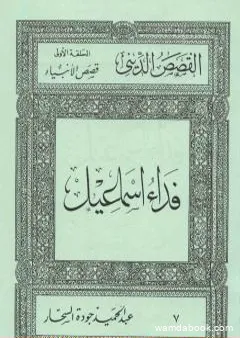 القصص الدينى
الحلقة الأولى
قصص الأنبياء
فداء اسماعيل
عبد الحميد جودة السحار
٧
wamdabook.com